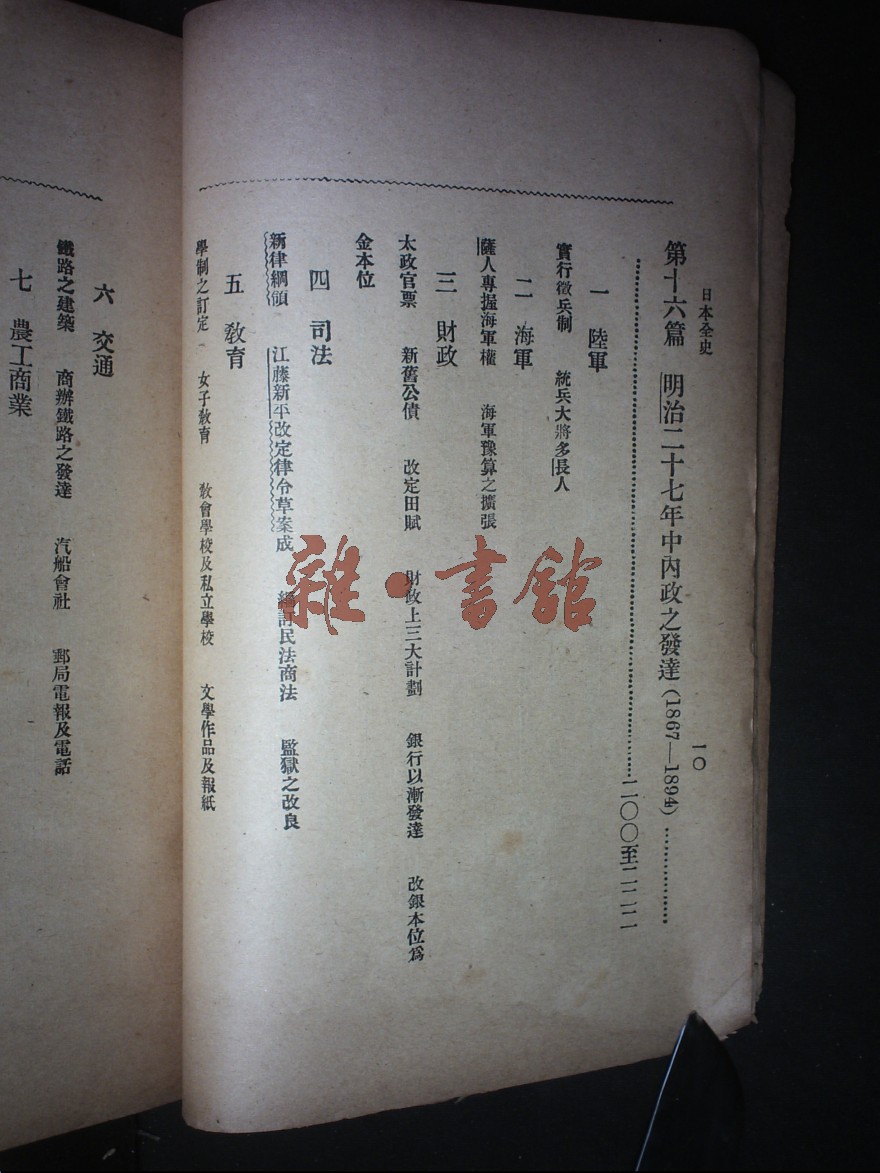 日本全史
一〇
第十六篇 明治二十七年中內政之發達(1867—1894)………………
………………二〇〇至二二二
一 陸軍
實行徵兵制 統兵大將多長人
二 海軍
薩人專握海軍權 海軍豫算之擴張
三 財政
太政官票 新舊公債 改定田賦 財政上三大計劃 銀行以漸發達 改銀本位爲
金本位
四 司法
新律綱領 江藤新平改定律令草案成 編訂民法商法 監獄之改良
五 敎育
學制之訂定 女子敎育 敎會學校及私立學校 文學作品及報紙
六 交通
鐵路之建築 商辦鐵路之發達 汽船會社 郵局電報及電話
七 農工商業
雜·書館